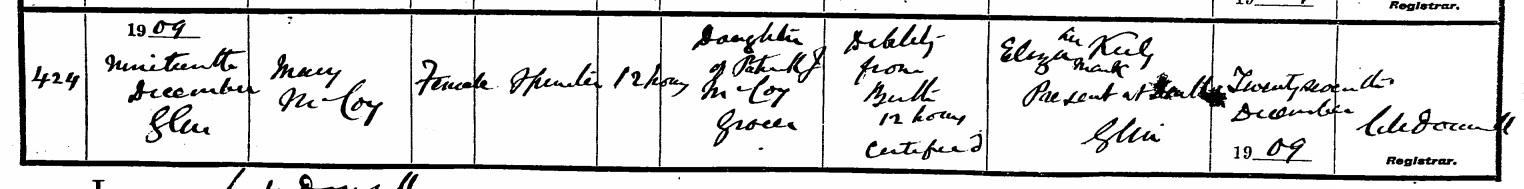 Registrar.
424
1909
Nineteenth
December
Glin
Mary
McCoy
Female
Spinster
12 hours
Daughter
of Patrick J
McCoy
Grocer
Debility
from
Birth
12 hours
Certified
Eliza her Kiely
mark
Present at death
Glin
Twenty seventh
December
1909
Registrar.